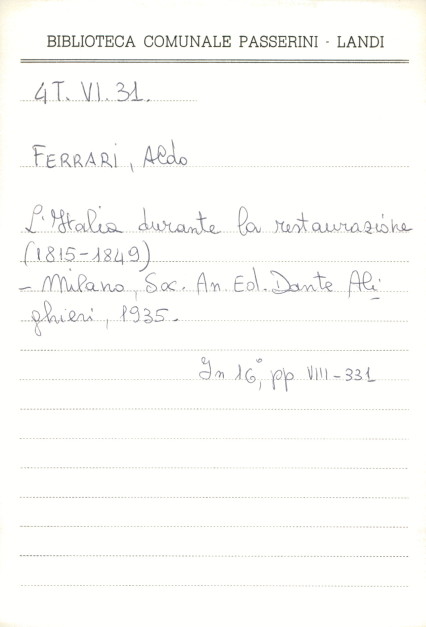 BIBLIOTECA COMUNALE PASSERINI - LANDI
4T. VI. 31.
FERRARI, Aldo
L'Italia durante la restaurazione
(1815-1849)
- Milano, Soc. An. Ed. Dante Ali
ghieri, 1935.
In 16°, pp VIII-331